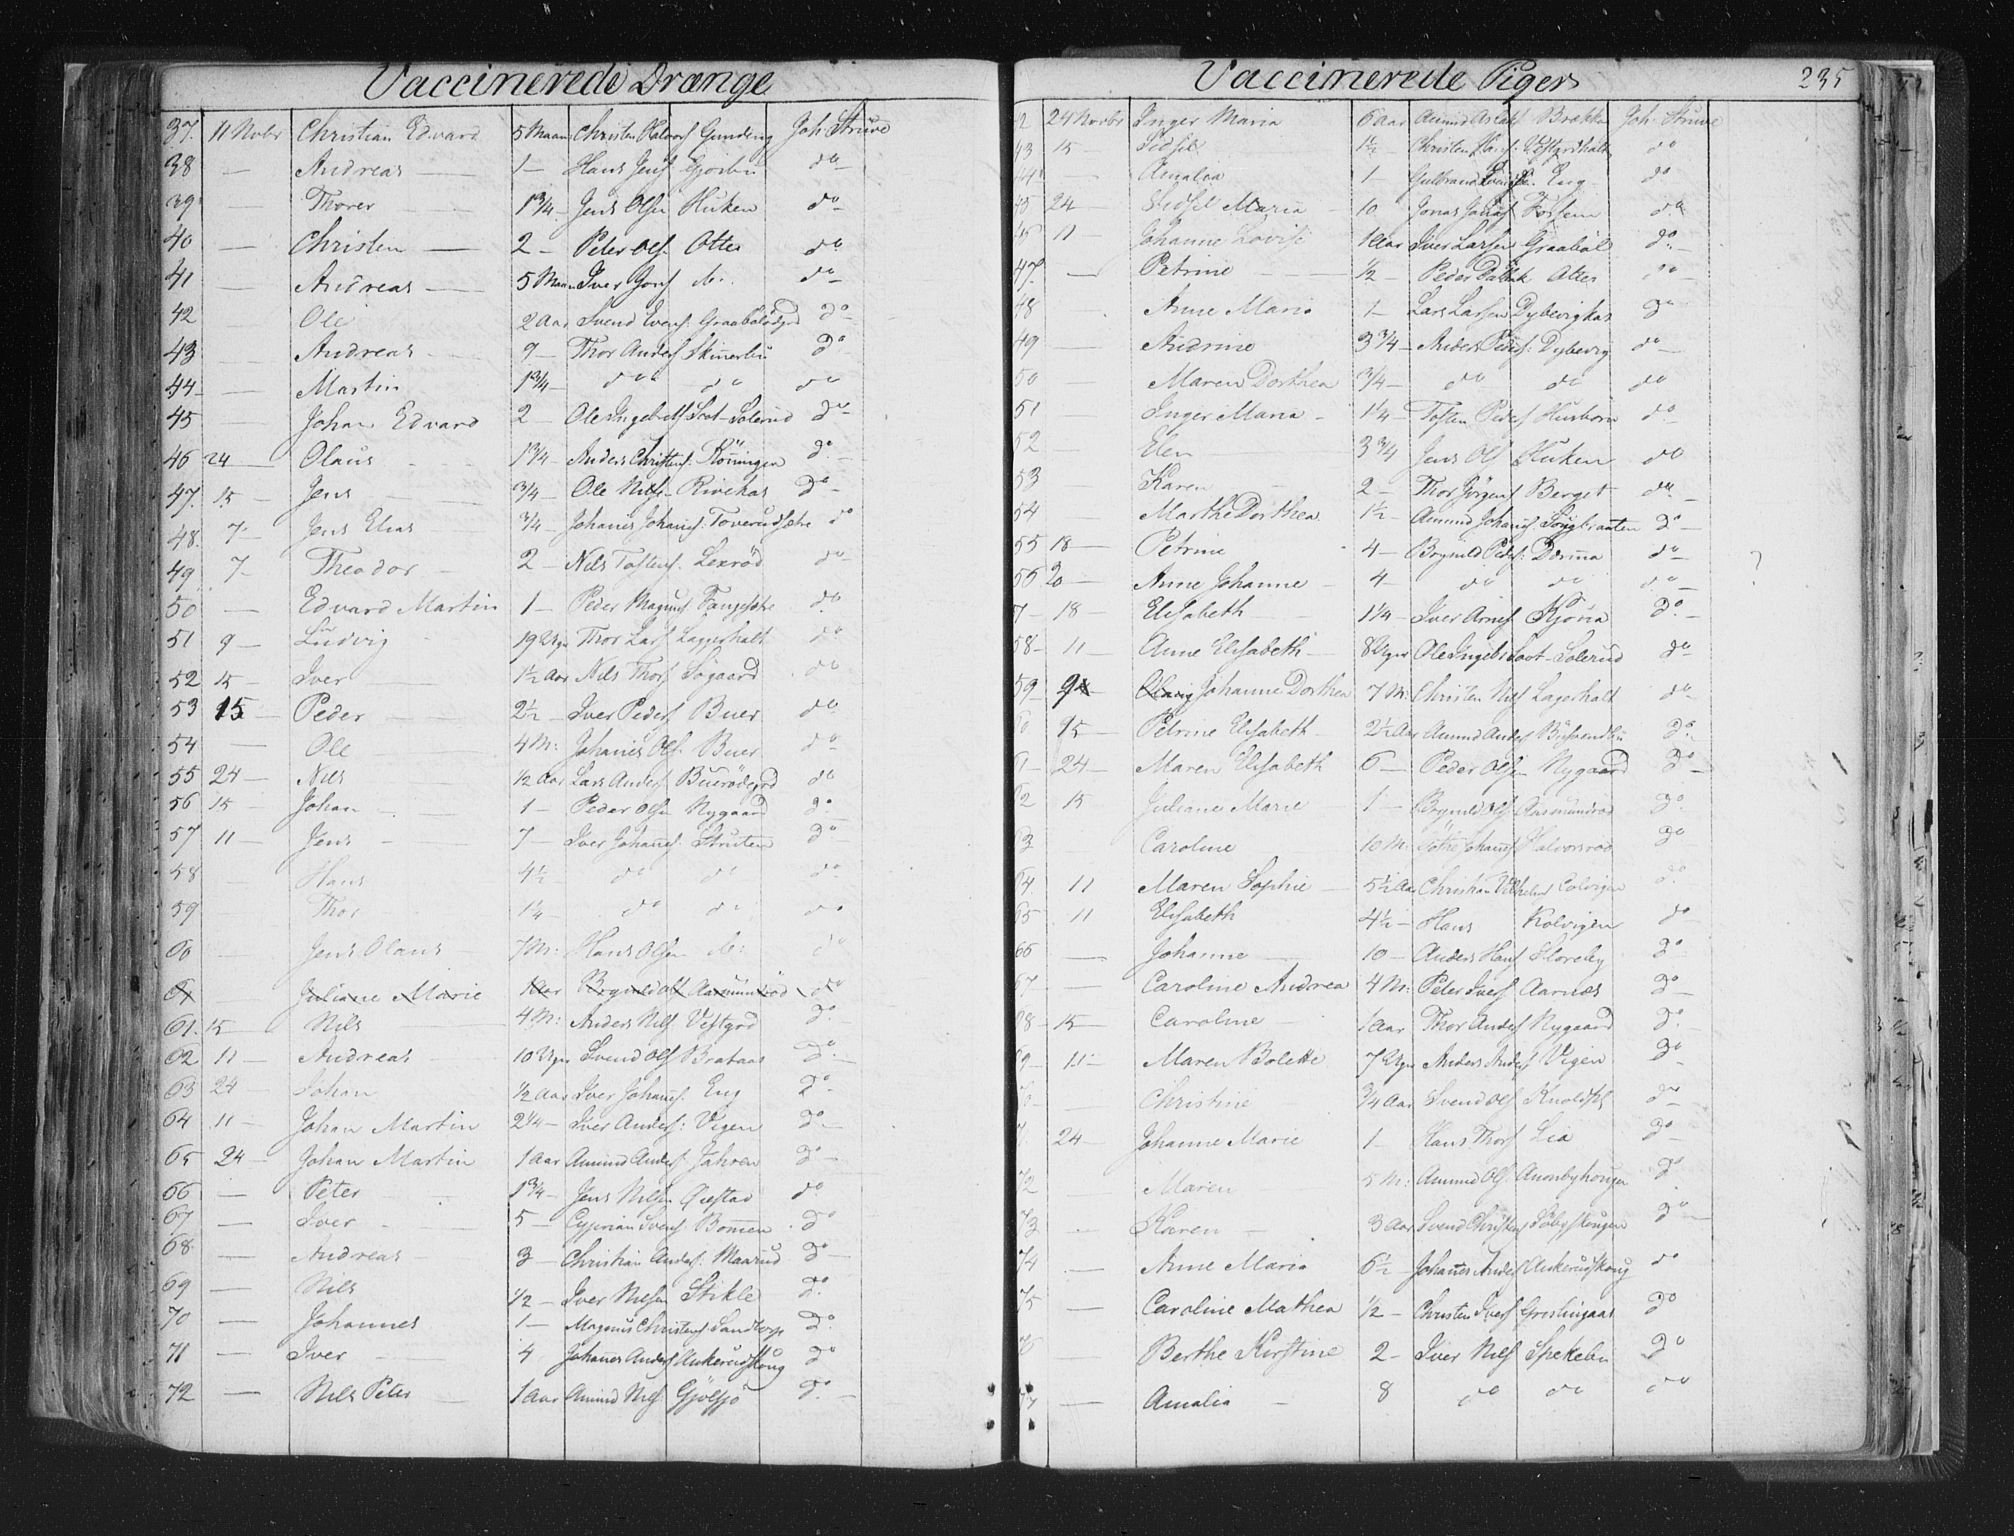 Vaccinerede Drænge
37. 11 Novbr Christian Edvard 5 Maan: Christen Halvors Gundeng Joh. Struve
38 — Andreas 1 — Hans Jens do
39 — Thorer 1 3/4 — Jens Olsen Huken do
40 — Christen 2 — Peter Ols Otter do
41 — Andreas 5 Maan Iver do
42 — Ole 2 Aar Svend Evens: Graabölödgrd do
43 — Andreas 9 — Thor Anders Skinerbu do
44 — Martin 1 3/4 — do do do
45 Johan Edvard 2 — Ole Ingebrets Soot-Solerud do
46 24 — Olaus 1 3/4 — Anders Christens: Rönningen do
47. 15 — Jens 3/4 — Ole Nils Rivekas do
48. 7 — Jens Elias 3/4 — Johanes Johanes: Toverudsætre do
49 7 — Theodor 2 — Nils Tostens. Lexröd do
50 — Edvard Martin 1 — Peder Magnus do
51 9 — Ludvig 19 Uger Thor Lars Lagerhalt do
52 15 — Iver 1 1/2 Aar Nils Thors Sögaard do
53 15 — Peder 2 1/2 — Iver Peders Buer do
54 — Ole 4 M: Johanes Ols. Buer do
55 24 — Nils 1/2 Aar Lars Anders Bueröd do
56 15 — Johan 1 — Peder Olsen Nygaard do
57 11 — Jens 7 — Iver Johanes Struten do
58 — Hans 4 1/2 do do do
59 Thor 1 1/4 — do do do
60 Jens Olaus 7 M: Hans Olsen do
61 Juliane Marie 1 Aar Brynild Ols Aasmundröd do
61. 15 — Nils 4 M: Anders Nils Vestgrd do
62 11 — Andreas 10 Uger Svend Ols Brataas do
63 24 Johan 1/2 Aar Iver Johanes. Eng do
64 11 — Johan Martin 2 1/4 — Iver Anders: Vigen do
65 24 — Johan Martin 1 Aar Amund Anders Jahren do
66 — Peter 1 3/4 — Jens Nilsen do
67 — Iver 5 — Cyprian Svens Bomen do
68. — Andreas 3 — Christian Anders: Maarud do
69 — Nils 1/2 — Iver Nilsen Stikle do
70 — Johannes 1 — Magnus Christens Sandtorp do
71 — Iver 4 Johanes Anders Aukerudskoug do
72 — Nils Peter 1 Aar Amund Nils. Gjölsjö do
Vaccinerede Piger 235
2 24 Novbr Inger Maria 6 Aar Amund Brække Joh. Struve
43 15 — Sidsel 1 1/2 — Christen do
44 Amalia 1 Gulbrand Eng do
45 24 — Sidsel Maria 10 Jonas Fossem do
46 11 — Johanne Lovise 1 Aar Iver Larsen Graaböl do
47. — Petrine 1/2 — Peder Otter do
48 Anne Maria 1 — Lars Larsen Dybevigkas do
49 — Andrine 3 3/4 — Anders Peders: Dybevig do
50 Maren Dorthea 3/4 — do do do
51 Inger Maria 1 1/4 — Tosten Peders Husborn do
52 Elen 3 3/4 Jens Ols Huken do
53 Karen 2 — Thor Jörgens Berget do
54 Marthe Dorthea 1 1/2 — Amund Johanes do
55 18 — Petrine 4 — Brynild Peders: do
55 20 — Anne Johanne 4 — do do do
7 — 18 — Elisabeth 1 1/4 — Iver Arnes do
58 — 11 — Anne Elisabeth 8 Uger Ole Ingebr Soot-Solerud do
59 9 — Johanne Dorthea 7 M: Christen Nils Lagerhalt do
0 15 — Petrine Elisabeth 2 1/2 Aar Amund Anders do
1 — 24 — Maren Elisabeth 6 — Peder Olsen Nygaard do
2 15 Juliane Marie 1 — Brynild Ols Aasmundröd do
3 Caroline 10 M: Johanes Halvorsröd do
64. 11 Maren Sophie 5 1/2 Aar Christian Vilhelm Colvigen do
65 11 Elisabeth 4 1/2 — Hans Kolvigen do
66 — Johanne 10 — Anders Hans Storeby do
67 — Caroline Andrea 4 M: Peter Ivers Aarnes do
68 — 15 — Caroline 1 Aar Thor Anders Nygaard do
9 — 11 — Maren Bolette 7 Uger Anders Anders Vigen do
0 — Christine 3/4 Aar Svend Ols do
24 — Johanne Marie 1 — Hans Thors Lia do
72 Maren 5 M: Amund Ols. do
73 — Karen 3 Aar Svend Christens do
74 — Anne Maria 6 1/2 — Johanes Anders Aukerudskoug do
75 — Caroline Mathea 1/2 — Christen Ivers do
76 — Berthe Kirstine 2 — Iver Nils Spekebu do
77 — Amalia 8 do do do